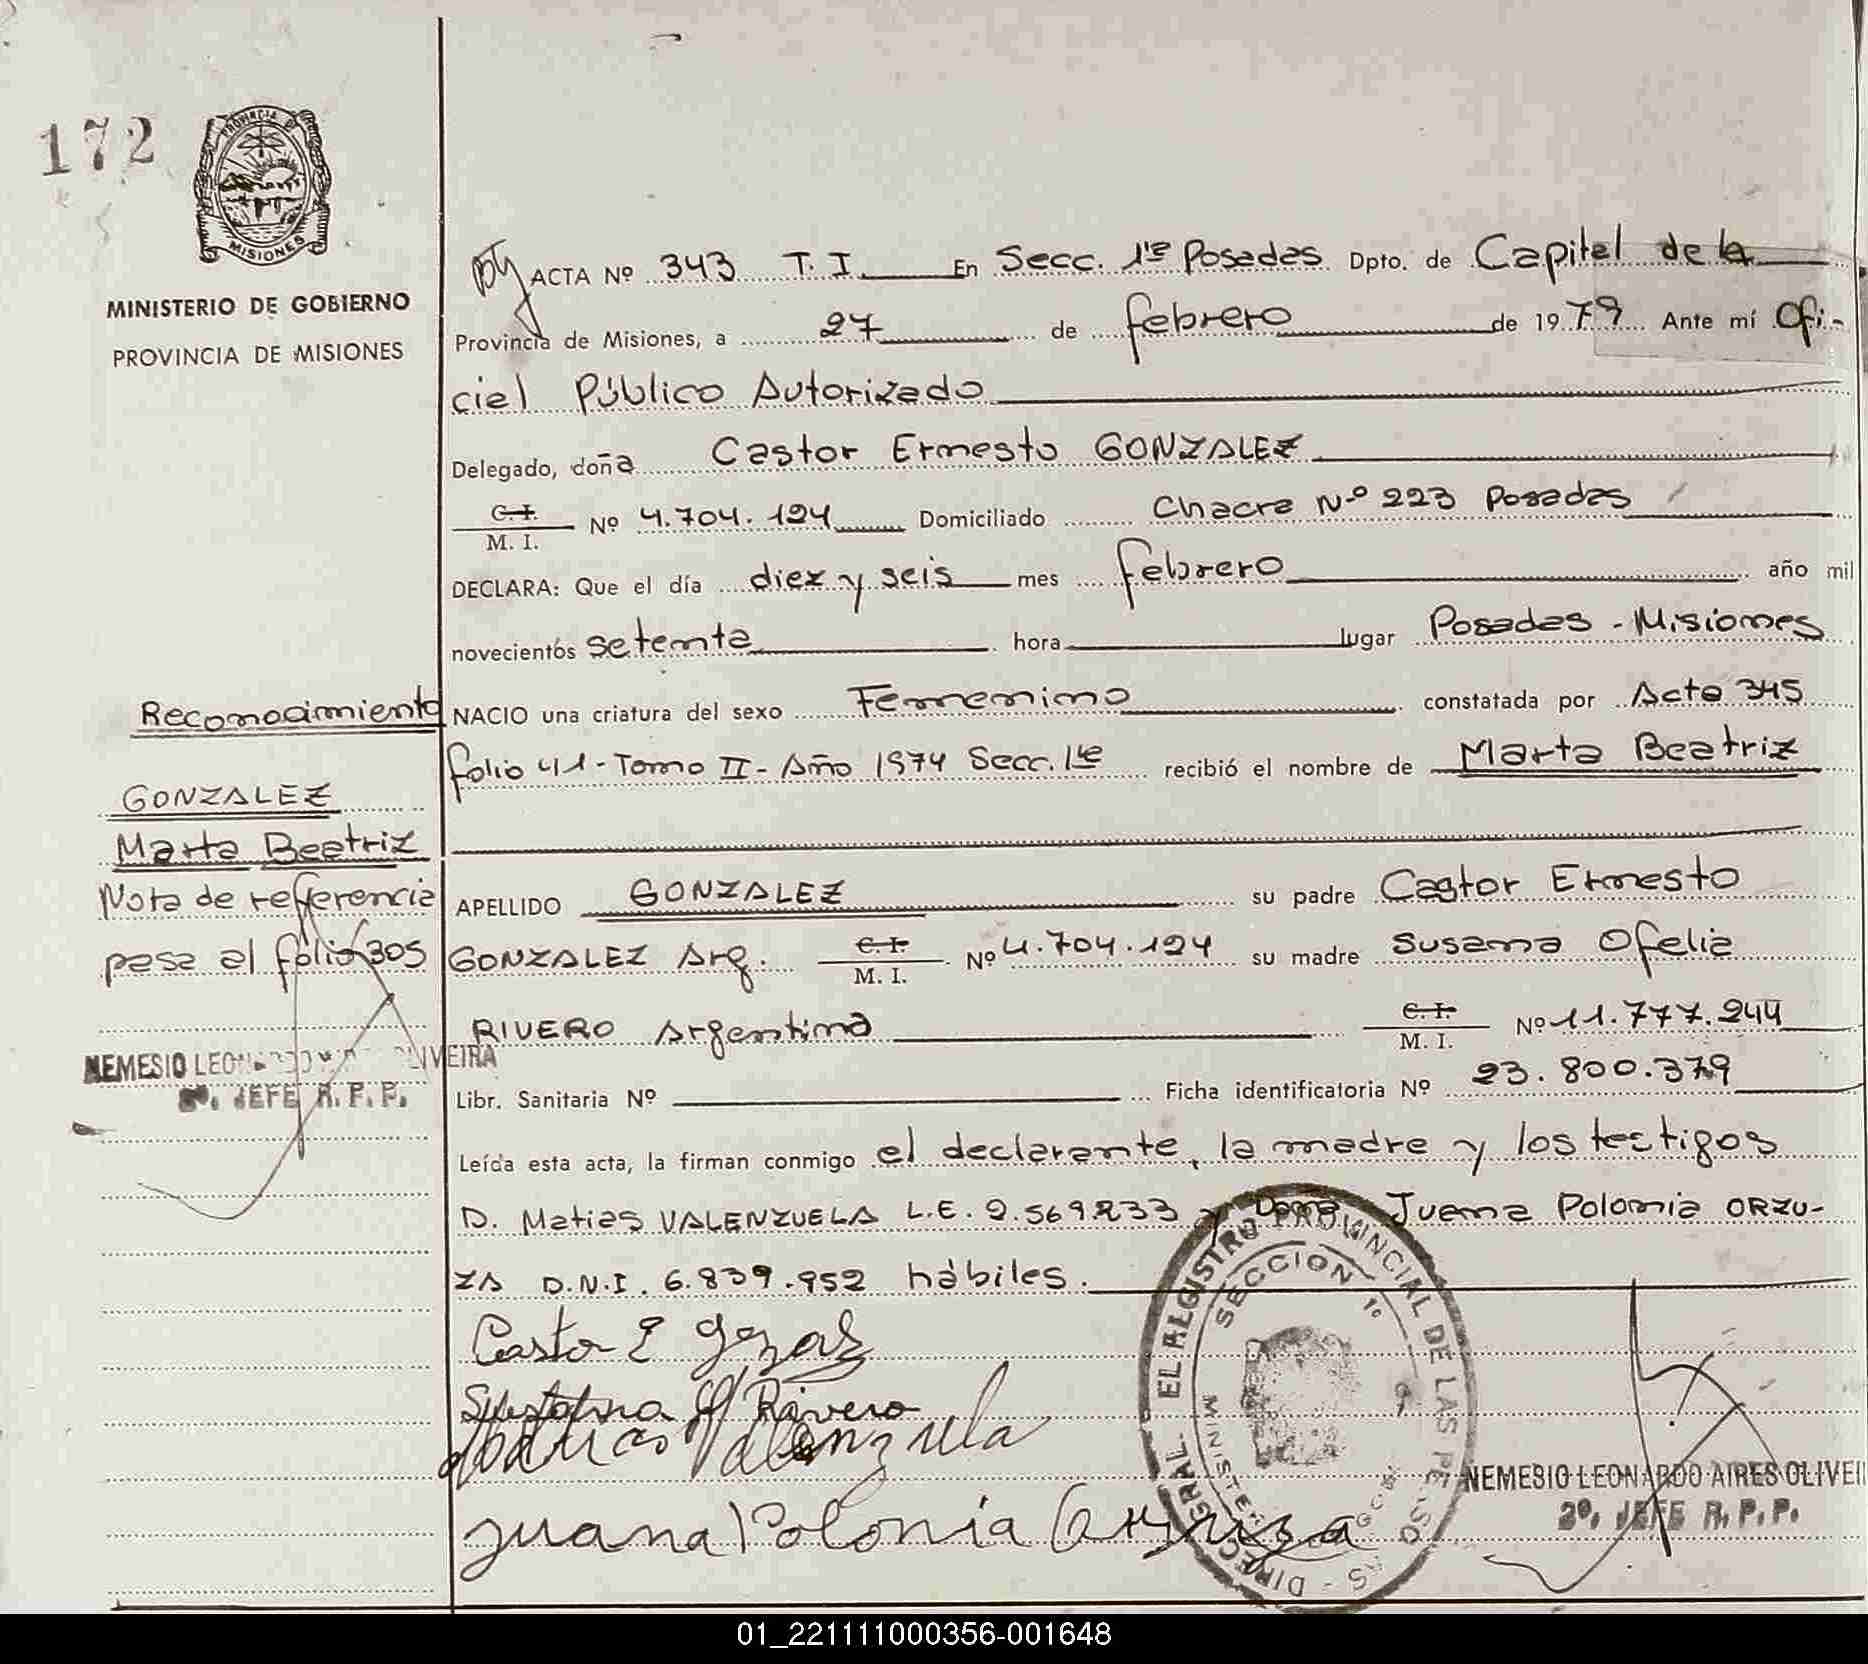 172
PROVINCIA DE
MISIONES
MINISTERIO DE GOBIERNO
PROVINCIA DE MISIONES
ACTA Nº 343 T. I. En Secc. 1ra Posadas Dpto. de Capital de la
Provincia de Misiones, a 27 de febrero de 1979 Ante mí Ofi-
cial Público Autorizado
Delegado, doña Castor Ernesto GONZALEZ
C. I.
M. I.
Nº 4.704.124 Domiciliado Chacra Nº 223 Posadas
DECLARA: Que el día diez y seis mes febrero año mil
novecientos setenta hora lugar Posadas - Misiones
NACIO una criatura del sexo Femenino constatada por Acta 345
folio 41 - Tomo II - Año 1974 Secc. 1ra recibió el nombre de Marta Beatriz
APELLIDO GONZALEZ su padre Castor Ernesto
GONZALEZ Arg. C. I. M. I. Nº 4.704.124 su madre Susana Ofelia
RIVERO Argentina C. I. M. I. Nº 11.777.244
Libr. Sanitaria Nº Ficha identificatoria Nº 23.800.379
Leída esta acta, la firman conmigo el declarante, la madre y los testigos
D. Matias VALENZUELA L.E. 2.569.233 y Doña Juana Polonia ORZU-
ZA D.N.I. 6.839.952 hábiles.
Reconocimiento
GONZALEZ
Marta Beatriz
Nota de referencia
pasa al folio 305
NEMESIO LEONARDO OLIVEIRA
2º. JEFE R. P. P.
Castor E
Susana O Rivero
Matias Valenzuela
Juana Polonia
REGISTRO PROVINCIAL DE LAS PERSONAS - DIRECC. GRAL.
SECCION 1º
NEMESIO LEONARDO AIRES OLIVEI
2º. JEFE R. P. P.
01_221111000356-001648